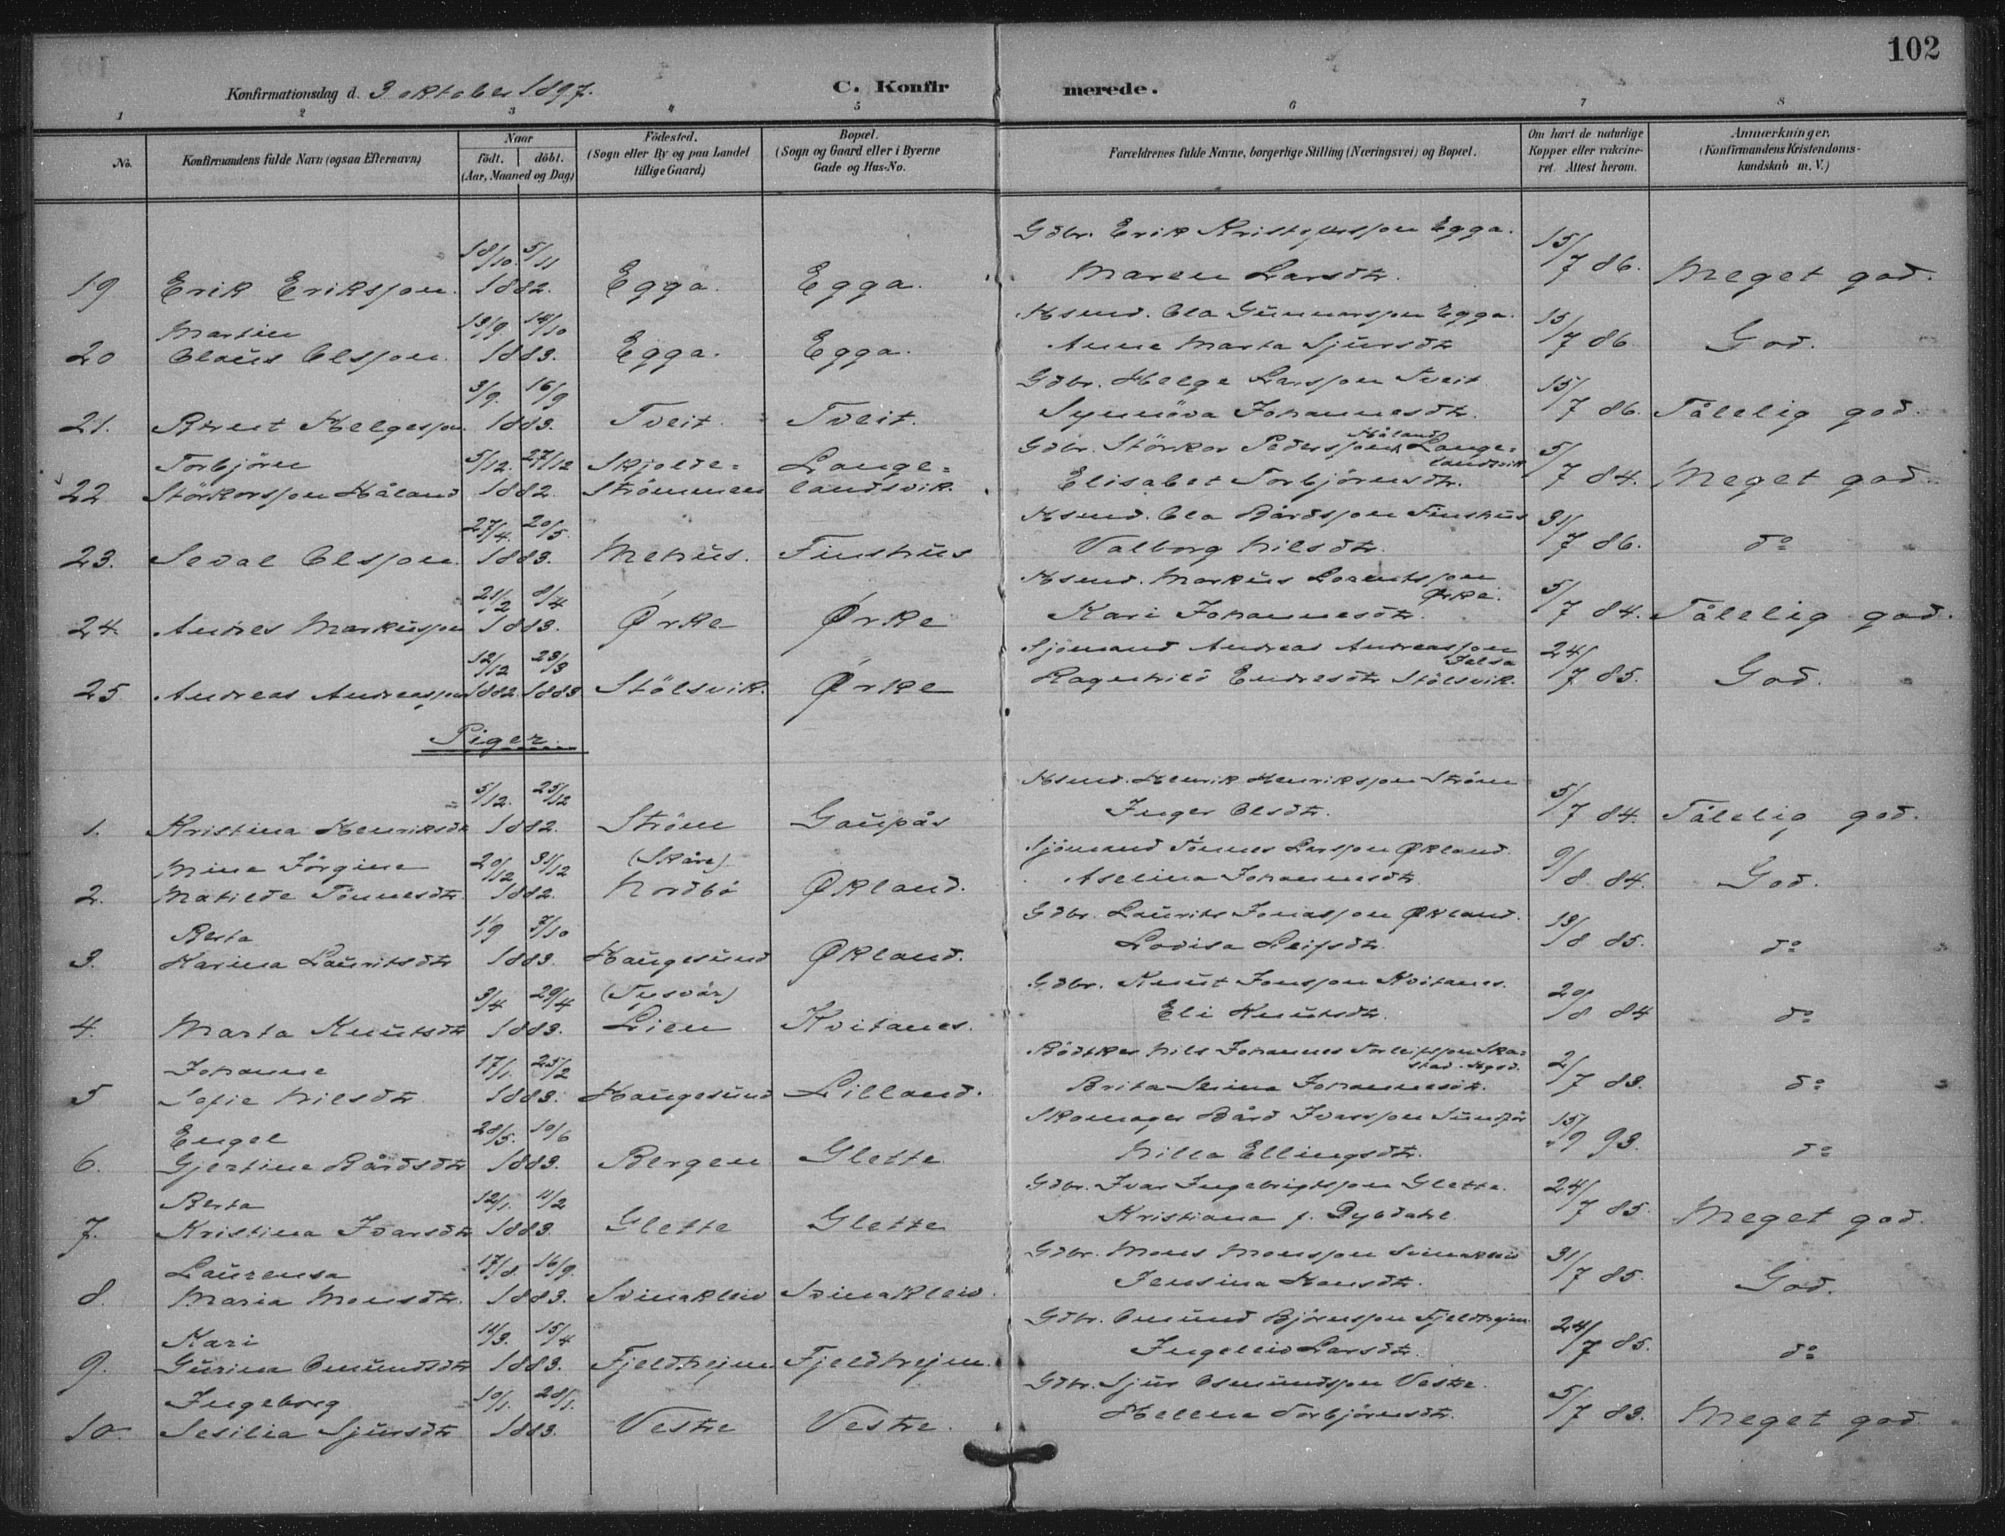 102
Konfirmationsdag d. 3 oktober 1897. C. Konfirmerede.
1 2 3 4 5 6 7 8
No. Konfirmandens fulde Navn (ogsaa Efternavn) Naar født. døbt. (Aar, Maaned og Dag) Fødested. (Sogn eller By og paa Landet tillige Gaard) Bopæl. (Sogn og Gaard eller i Byerne Gade og Hus-No. Forældrenes fulde Navne, borgerlige Stilling (Næringsvei) og Bopæl. Om havt de naturlige Kopper eller vakcineret. Attest herom. Anmærkninger. (Konfirmandens Kristendomskundskab m. V.)
18/10. 5/11 Gdbr. Erik Egga. 15/7 86.
19 Erik Eriksson. 1882. Egga. Egga. Maren Larsdtr. Meget god.
Martin 13/9. 14/10 Hsmd. Ola Gunnarsson Egga. 15/7 86
20 Olaus Olsson. 1883. Egga. Egga. Anna Marta Sjursdtr God.
3/9. 16/9 Gdbr. Helge Larsson Tveit 15/7 86.
21. Bernt Helgesson 1883. Tveit. Tveit. Synnöva Johannesdtr. Tålelig god.
Torbjörn 5/12. 27/12 Skjolde= Lange= Gdbr. Störkor Pedersson Håland, Lange=landsvik 5/7 84.
22 Störkorsson Håland 1882. Strömmen landsvik. Elisabet Torbjörnsdtr. Meget god.
27/4. 20/5. Hsmd. Ola Bårdsson Finshus 31/7 86.
23. Sedal Olsson. 1883. Mehus. Finshus Valborg Nilsdtr. do
21/2 8/4 Hsmd. Markus Lorentsson Ørke. 5/7 84.
24. Andres Markusson 1883. Ørke Ørke Kari Johannesdtr. Tålelig god.
12/12 23/3 Sjömand Andreas Andreasson Jelsa 24/7 85.
25. Andreas Andreasson 1882. 1883 Stölsvik. Ørke Ragnhild Endresdtr Stölsvik. God.
Piger.
5/12. 25/12 Hsmd. Henrik Henriksson Ström 5/7 84.
1. Kristina Henriksdtr 1882. Ström Gaupås Inger Olsdtr. Tålelig god.
Mina Jörgine 20/12 31/12 (Skåre) Sjömand Tönnes Larsson Økland. 9/8 84.
2. Matilde Tönnesdtr. 1882. Nordbö Økland. Aselina Johannesdtr. God.
Berta 1/9 7/10 Gdbr. Laurits Jonasson Økland. 13/8 85.
3. Karina Lauritsdtr 1883. Haugesund Økland. Lovisa Leifsdtr. do
3/4 29/4 (Tysvär) Gdbr. Knut Jonsson Kvitanes. 20/8 84
4. Marta Knutsdtr 1883. Lien Kvitanes. Eli Knutsdtr. do
Johanne 17/1. 25/2 Bödtker Nils Johannes Torleifsson 2/7 83.
5 Sofie Nilsdtr. 1883. Haugesund Lilland. Brita Johannesdtr. do
Engel 28/5. 10/6 Skomager Bård Ivarsson 15/9 93.
6. Gjertine Bårdsdtr 1883. Bergen Glette Nilla Ellingsdtr. do
Berta 12/1. 11/2 Gdbr. Ivar Ingebrigtsson Glette. 24/7 85.
7. Kristina Ivarsdtr 1883. Glette Glette Kristiana f. Dybdahl Meget god.
Laurensa 17/8. 16/9. Gdbr. Mons Monsson Svinakleiv 31/7 85.
8. Maria Monsdtr. 1883. Svinakleiv Svinakleiv. Jensina Hansdtr. God.
Kari 11/3. 15/4 Gdbr. Omund Björnsson Fjeldhejm 24/7 85.
9. Gurina Omundsdtr 1883. Fjeldhejm Fjeldhejm. Ingeleiv Larsdtr. do
Ingeborg 10/1. 28/1. Gdbr. Sjur Osmundsson Vestre. 5/7 83.
10. Sesilia Sjursdtr 1883. Vestre Vestre. Helena Torbjörnsdtr. Meget god.